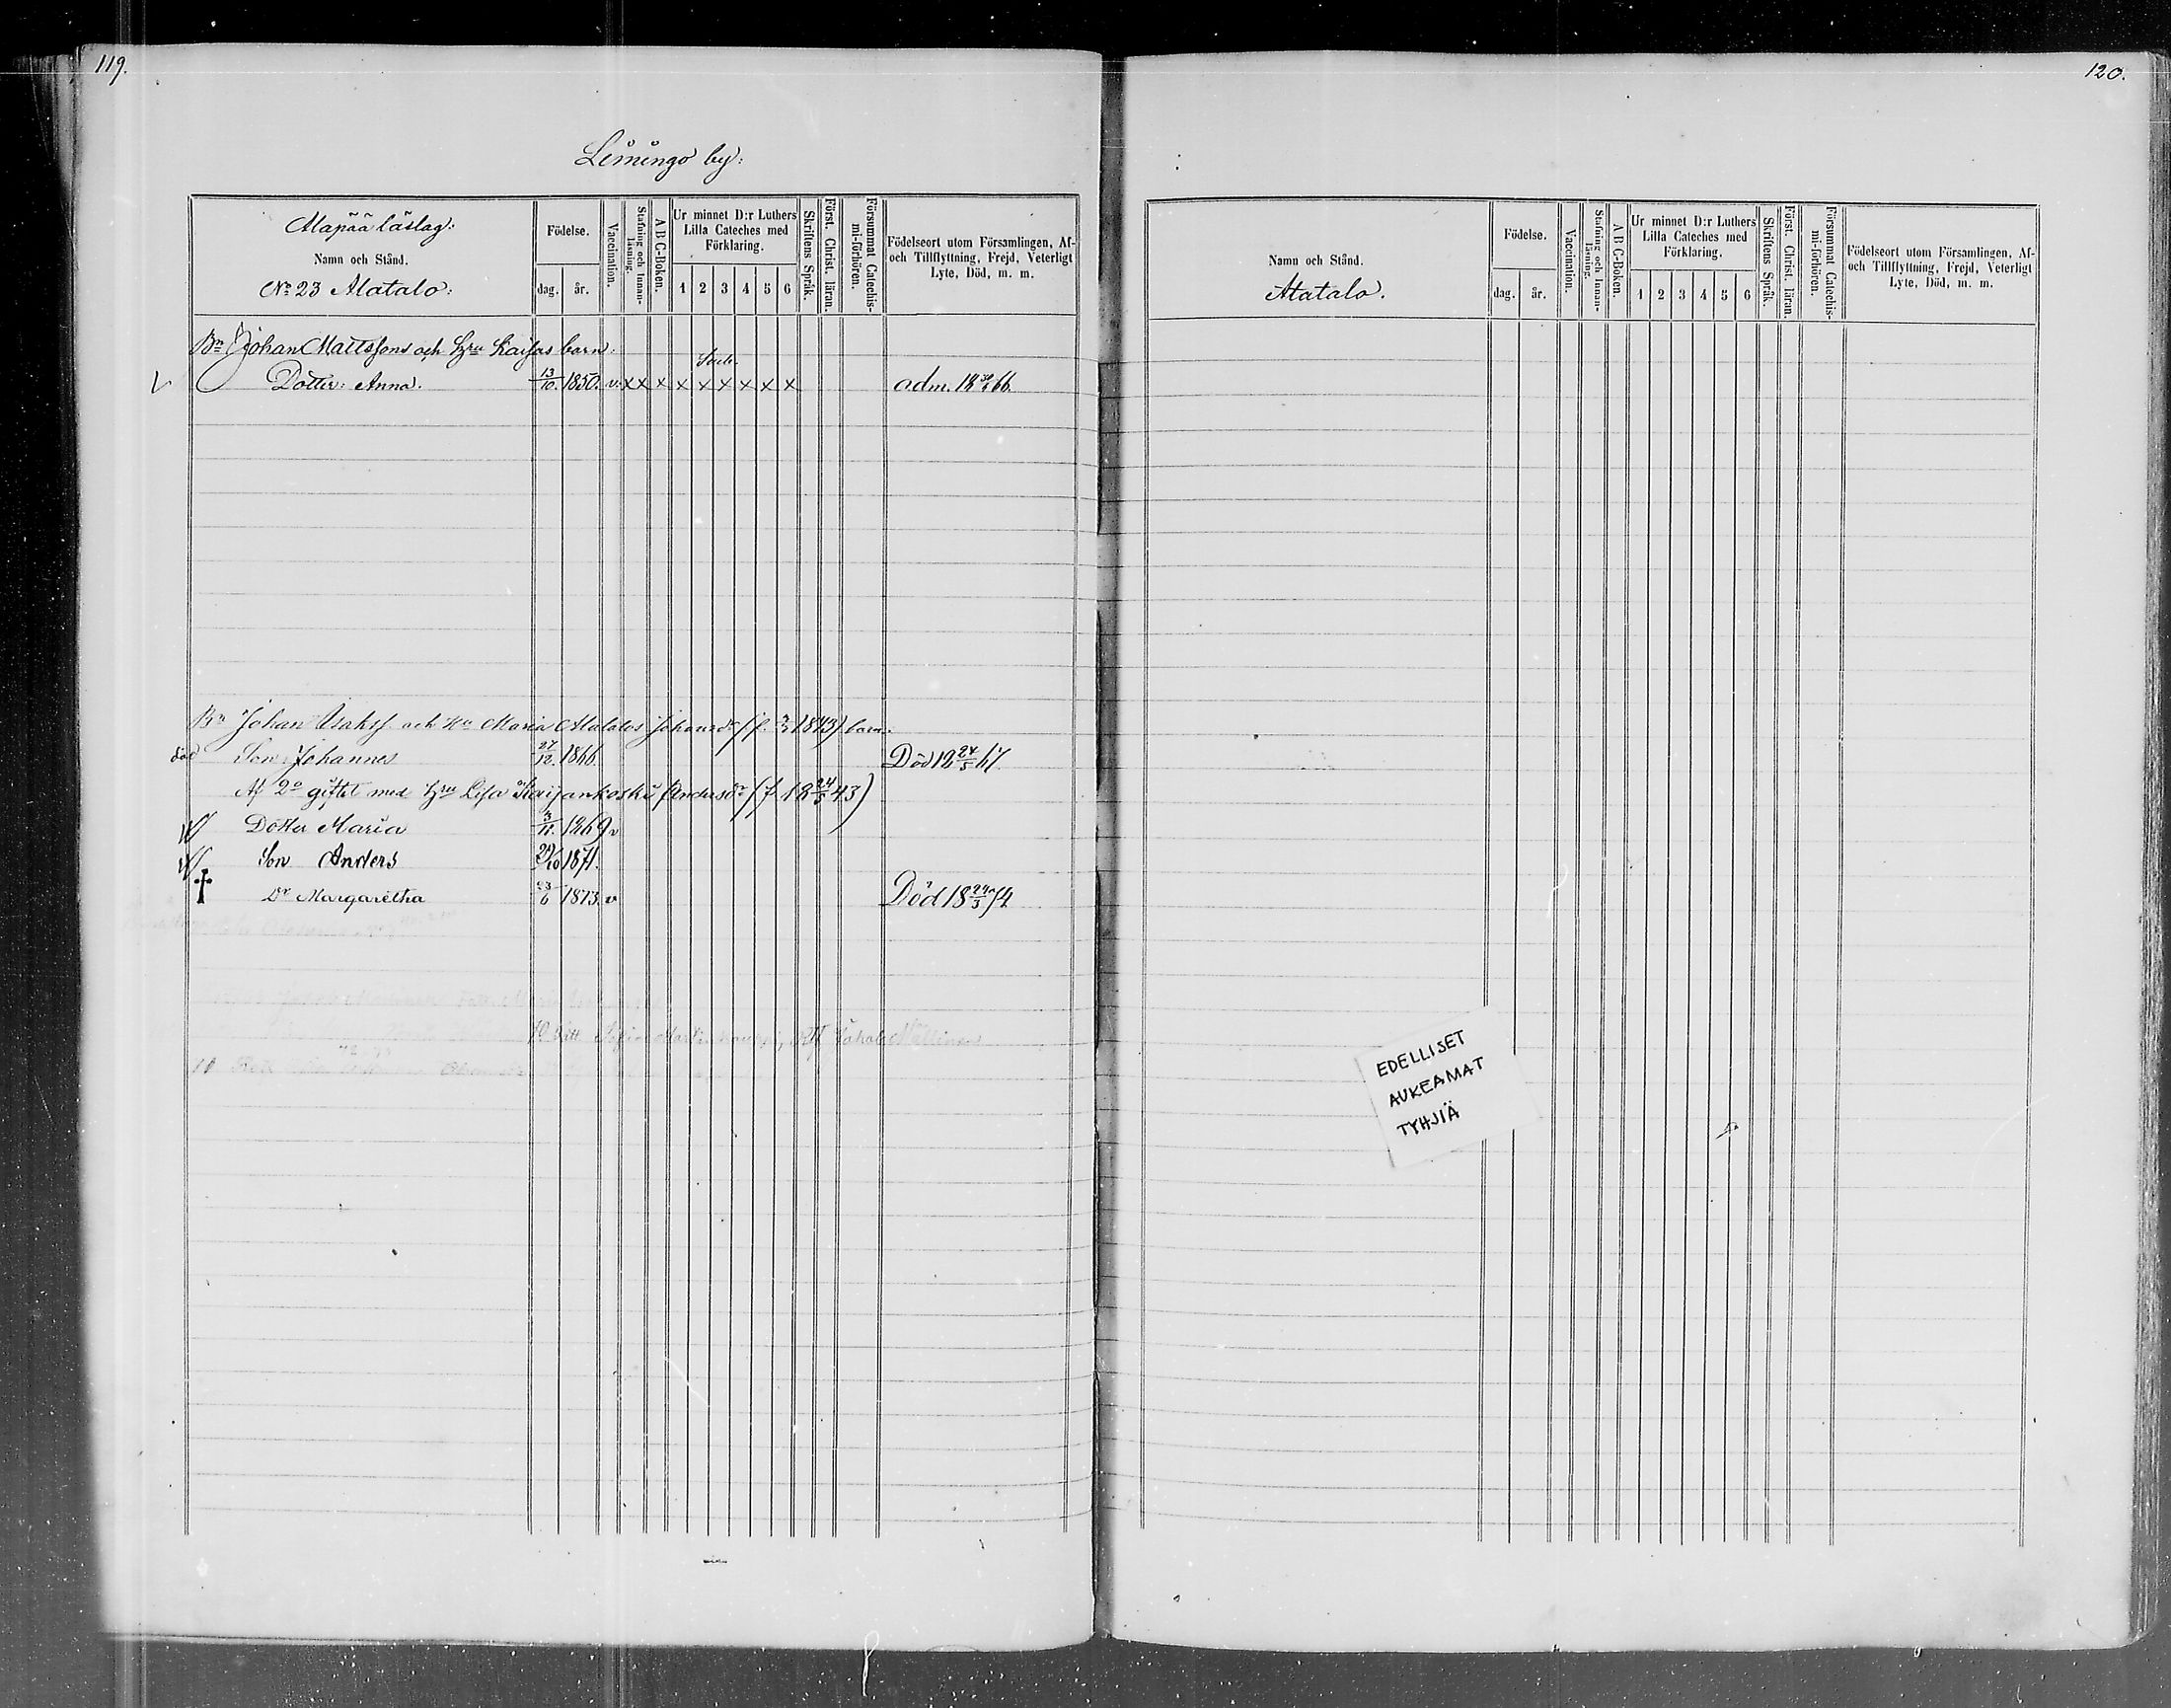 119.
Limingo by:
Alapää läslag:
Namn och Stånd.
No 23 Alatalo:
Födelse.
dag. år.
Vaccination.
Stafning och Innan-
läsning.
A B C-Boken.
Ur minnet D:r Luthers
Lilla Cateches med
Förklaring.
1 2 3 4 5 6
Skriftens Språk.
Först. Christ. läran.
Försummat Catechis-
mi-förhören.
Födelseort utom Församlingen, Af-
och Tillflyttning, Frejd, Veterligt
Lyte, Död, m. m.
Bn Johan Mattssons och Hru Kaisas barn:
Dotter: Anna. 13/10. 1850. v. x x x x x x x x x adm. 18 30/6 66.
Bn Johan Isakss och Hu Maria Alatalos Johansdr (f. 1843) barn.
död Son Johannes 27/12. 1866. Död 18 24/5 67.
Af 2o giftet med Hru Lisa Andersdr (f. 18 24/5 43)
Dotter Maria 3/11. 1869 v
Son Anders 29/10 1871.
† Dr Margaretha 23/6 1873. v Död 18 /5 74
120.
Namn och Stånd.
Alatalo.
Födelse.
dag. år.
Vaccination.
Stafning och Innan-
läsning.
A B C-Boken.
Ur minnet D:r Luthers
Lilla Cateches med
Förklaring.
1 2 3 4 5 6
Skriftens Språk.
Först. Christ. läran.
Försummat Catechis-
mi-förhören.
Födelseort utom Församlingen, Af-
och Tillflyttning, Frejd, Veterligt
Lyte, Död, m. m.
EDELLISET
AUKEAMAT
TYHJIÄ